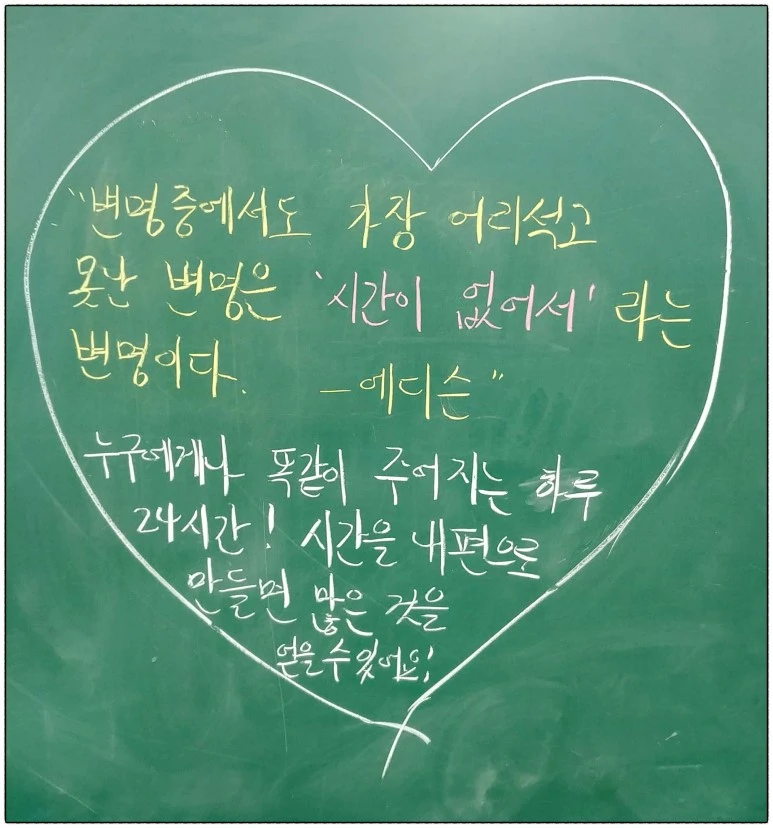 "변명중에서도 가장 어리석고
못난 변명은 '시간이 없어서' 라는
변명이다. -에디슨"
누구에게나 똑같이 주어지는 하루
24시간! 시간을 내편으로
만들면 많은 것을
얻을수있어요!